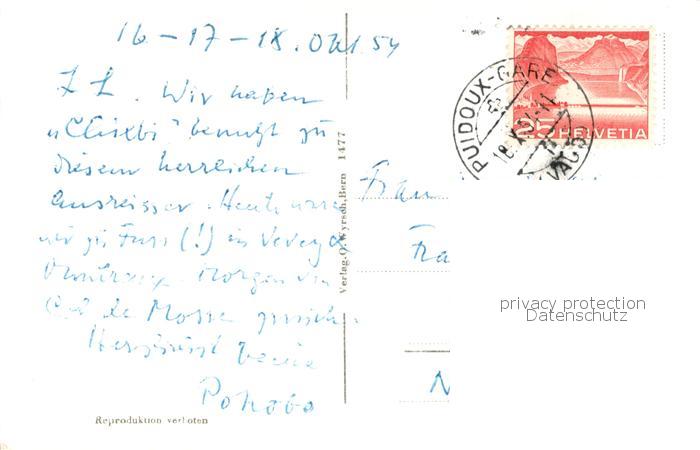 16-17-18. Okt 54
Wir haben
benutzt zu
diesem herrlichen
Ausreisser. Heute waren
wir zu Fuss (!) in Vevey &
Montreux. Morgen
Col de Mosse zurück.
Herzlichst
Reproduktion verboten
Verlag O. Wyrsch, Bern 1477
PUIDOUX-GARE
25 HELVETIA
Frau
Fra
N
privacy protection
Datenschutz